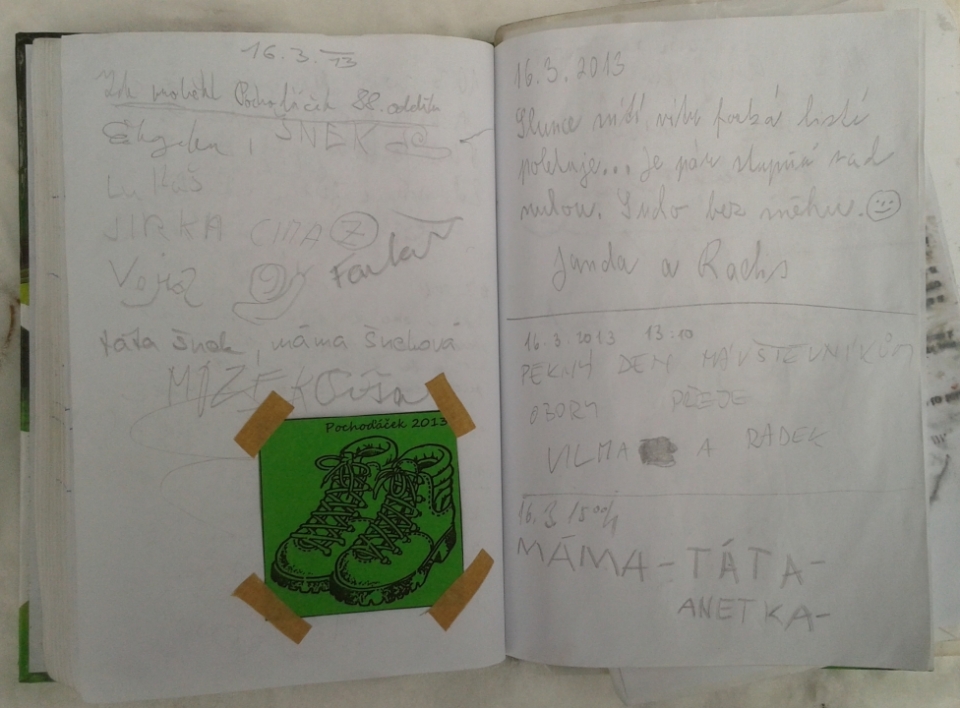 16.3.13
Zde proběhl Pochoďáček 88. oddílu
ŠNEK
Lukáš
JIRKA
Vojta
táta Šnek, máma Šneková
Pochoďáček 2013
16.3.2013
Slunce svítí, vítr fouká listí
poletuje... je pár stupňů nad
nulou. Jindo bez sněhu.
Janda a
16.3.2013 13:10
PĚKNÝ DEN NÁVŠTĚVNÍKŮM
OBORY PŘEJE
VILMA A RADEK
16.3 15
MÁMA - TÁTA -
ANETKA -